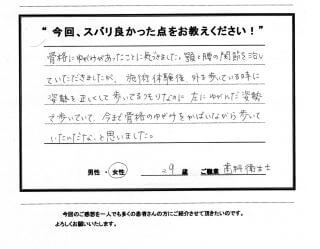 “ 今回、スバリ良かった点をお教えください！”
骨格にゆがみがあったことに気づきました。顎と腰の関節を治し
ていただきましたが、施術体験後、外を歩いている時に
姿勢を正しくして歩いてるつもりなのに 左にゆがんだ姿勢
で歩いていて、今まで骨格のゆがみをかばいながら歩いて
いたのだな、と思いました。
男性 ・ 女性 29 歳 ご職業 歯科衛生士
今回のご感想を一人でも多くの患者さんの方にご紹介させて頂きたいのです。
よろしくお願いいたします。